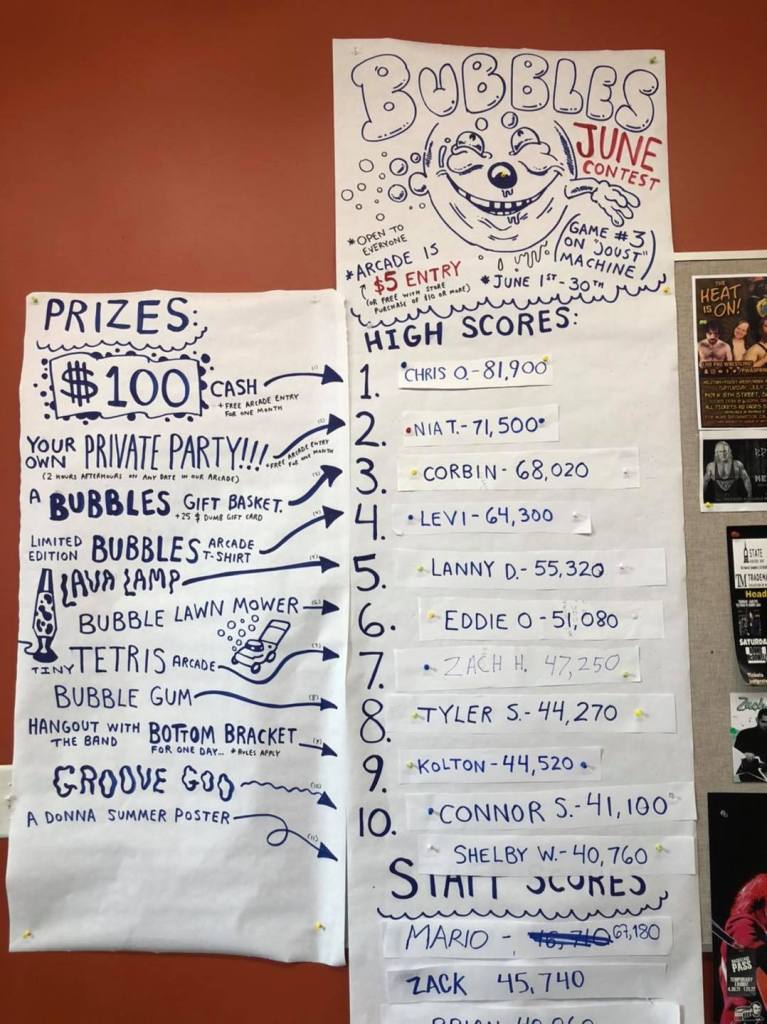 BUBBLES
JUNE
CONTEST
* OPEN TO
EVERYONE
* ARCADE IS
$5 ENTRY
(OR FREE WITH STORE
PURCHASE OF $10 OR MORE)
(GAME #3
ON "JOUST"
MACHINE)
* JUNE 1ST - 30TH
PRIZES:
$100 CASH
+ FREE ARCADE ENTRY
FOR ONE MONTH
(1)
YOUR
OWN PRIVATE PARTY!!!
+ FREE ARCADE ENTRY
FOR ONE MONTH
(2 HOURS AFTERHOURS ON ANY DATE IN OUR ARCADE)
A BUBBLES GIFT BASKET.
+ 25 $ DUMB GIFT CARD
LIMITED
EDITION BUBBLES ARCADE
T-SHIRT
LAVA LAMP
BUBBLE LAWN MOWER
TINY TETRIS ARCADE
BUBBLE GUM
(8)
HANGOUT WITH
THE BAND BOTTOM BRACKET
FOR ONE DAY... * RULES APPLY
(9)
GROOVE GOO
(10)
A DONNA SUMMER POSTER
(11)
HIGH SCORES:
1. CHRIS O. - 81,900
2. NIA T. - 71,500
3. CORBIN - 68,020
4. LEVI - 64,300
5. LANNY D. - 55,320
6. EDDIE O - 51,080
7. ZACH H. 47,250
8. TYLER S. - 44,270
9. KOLTON - 44,520
10. CONNOR S. - 41,100
SHELBY W. - 40,760
STAFF SCORES
MARIO - 67,180
ZACK 45,740
THE
HEAT
IS ON!
LIVE PRO WRESTLING
STATE
TM TRADEMA
Head
SATURDA
Tickets
Zach
PASS